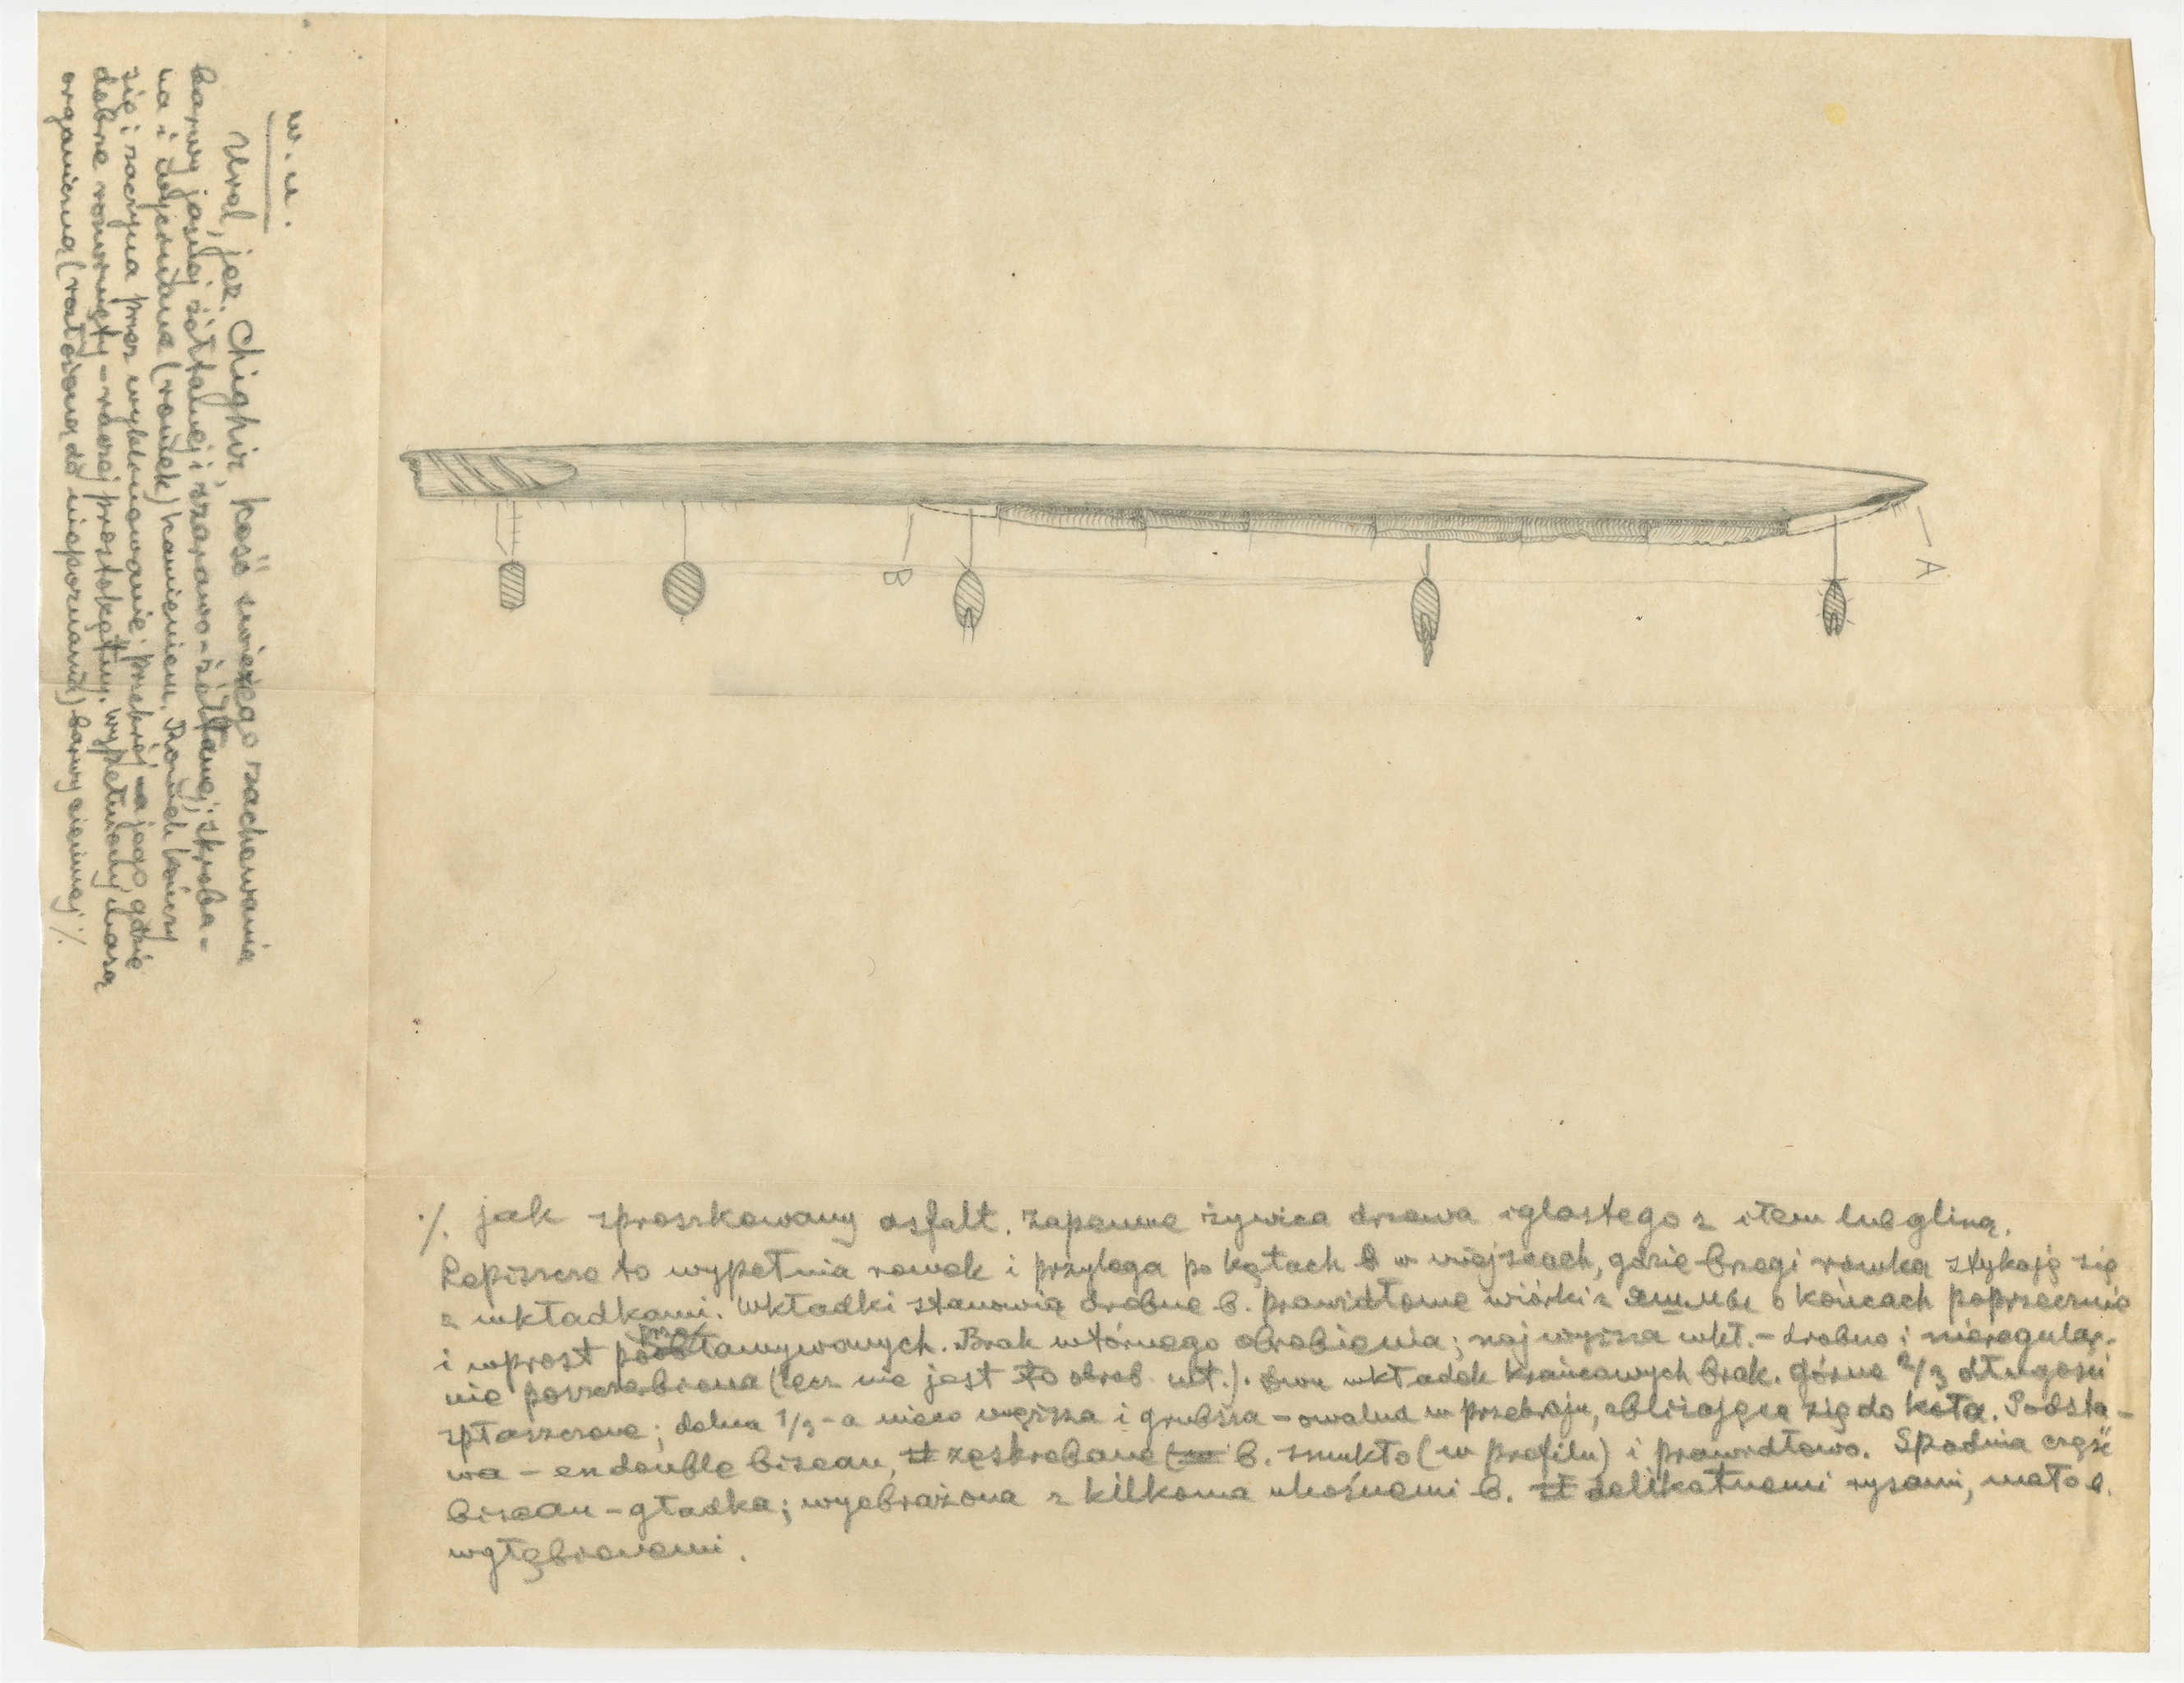 w. u.
Ural, jez. Chighir, kość świeżego zachowania
barwy jasnej żółtawej i szarawo-żółtawej; skroba-
na i (rowek) kamieniem. Rowek kończy
się i zaczyna przez wyklinowanie; przekrój na jego gdzie
dobrze rozwinięty – raczej prostokątny. Wypełniony masą
organiczną (zatożoną do niepoznania) barwy ciemnej ·/.
A
B
·/. jak sproszkowany asfalt. Zapewne żywica drzewa iglastego z iłem lub gliną.
Lepiszcze to wypełnia rowek i przylega po kątach w miejscach, gdzie brzegi rowka stykają się
z wkładkami. Wkładki stanowią drobne b. prawidłowe wiórki z яшмы o końcach poprzecznie
i wprost Brak wtórnego obrobienia; najwyższa wkł. – drobno i nieregular-
nie poszczerbiona (lecz nie jest to obrob. wt.). Dwu wkładek krańcowych brak. Górne 2/3 długości
spłaszczone; dolna 1/3 – a nieco węższa i grubsza – owalna w przekroju, zbliżającą się do koła. Podsta-
wa – en double biseau, zeskrobane b. smukło (w profilu) i prawidłowo. Spodnia część
biseau – gładka; wyobrażona z kilkoma ukośnemi b. delikatnemi rysami, mało b.
wgłębionemi.